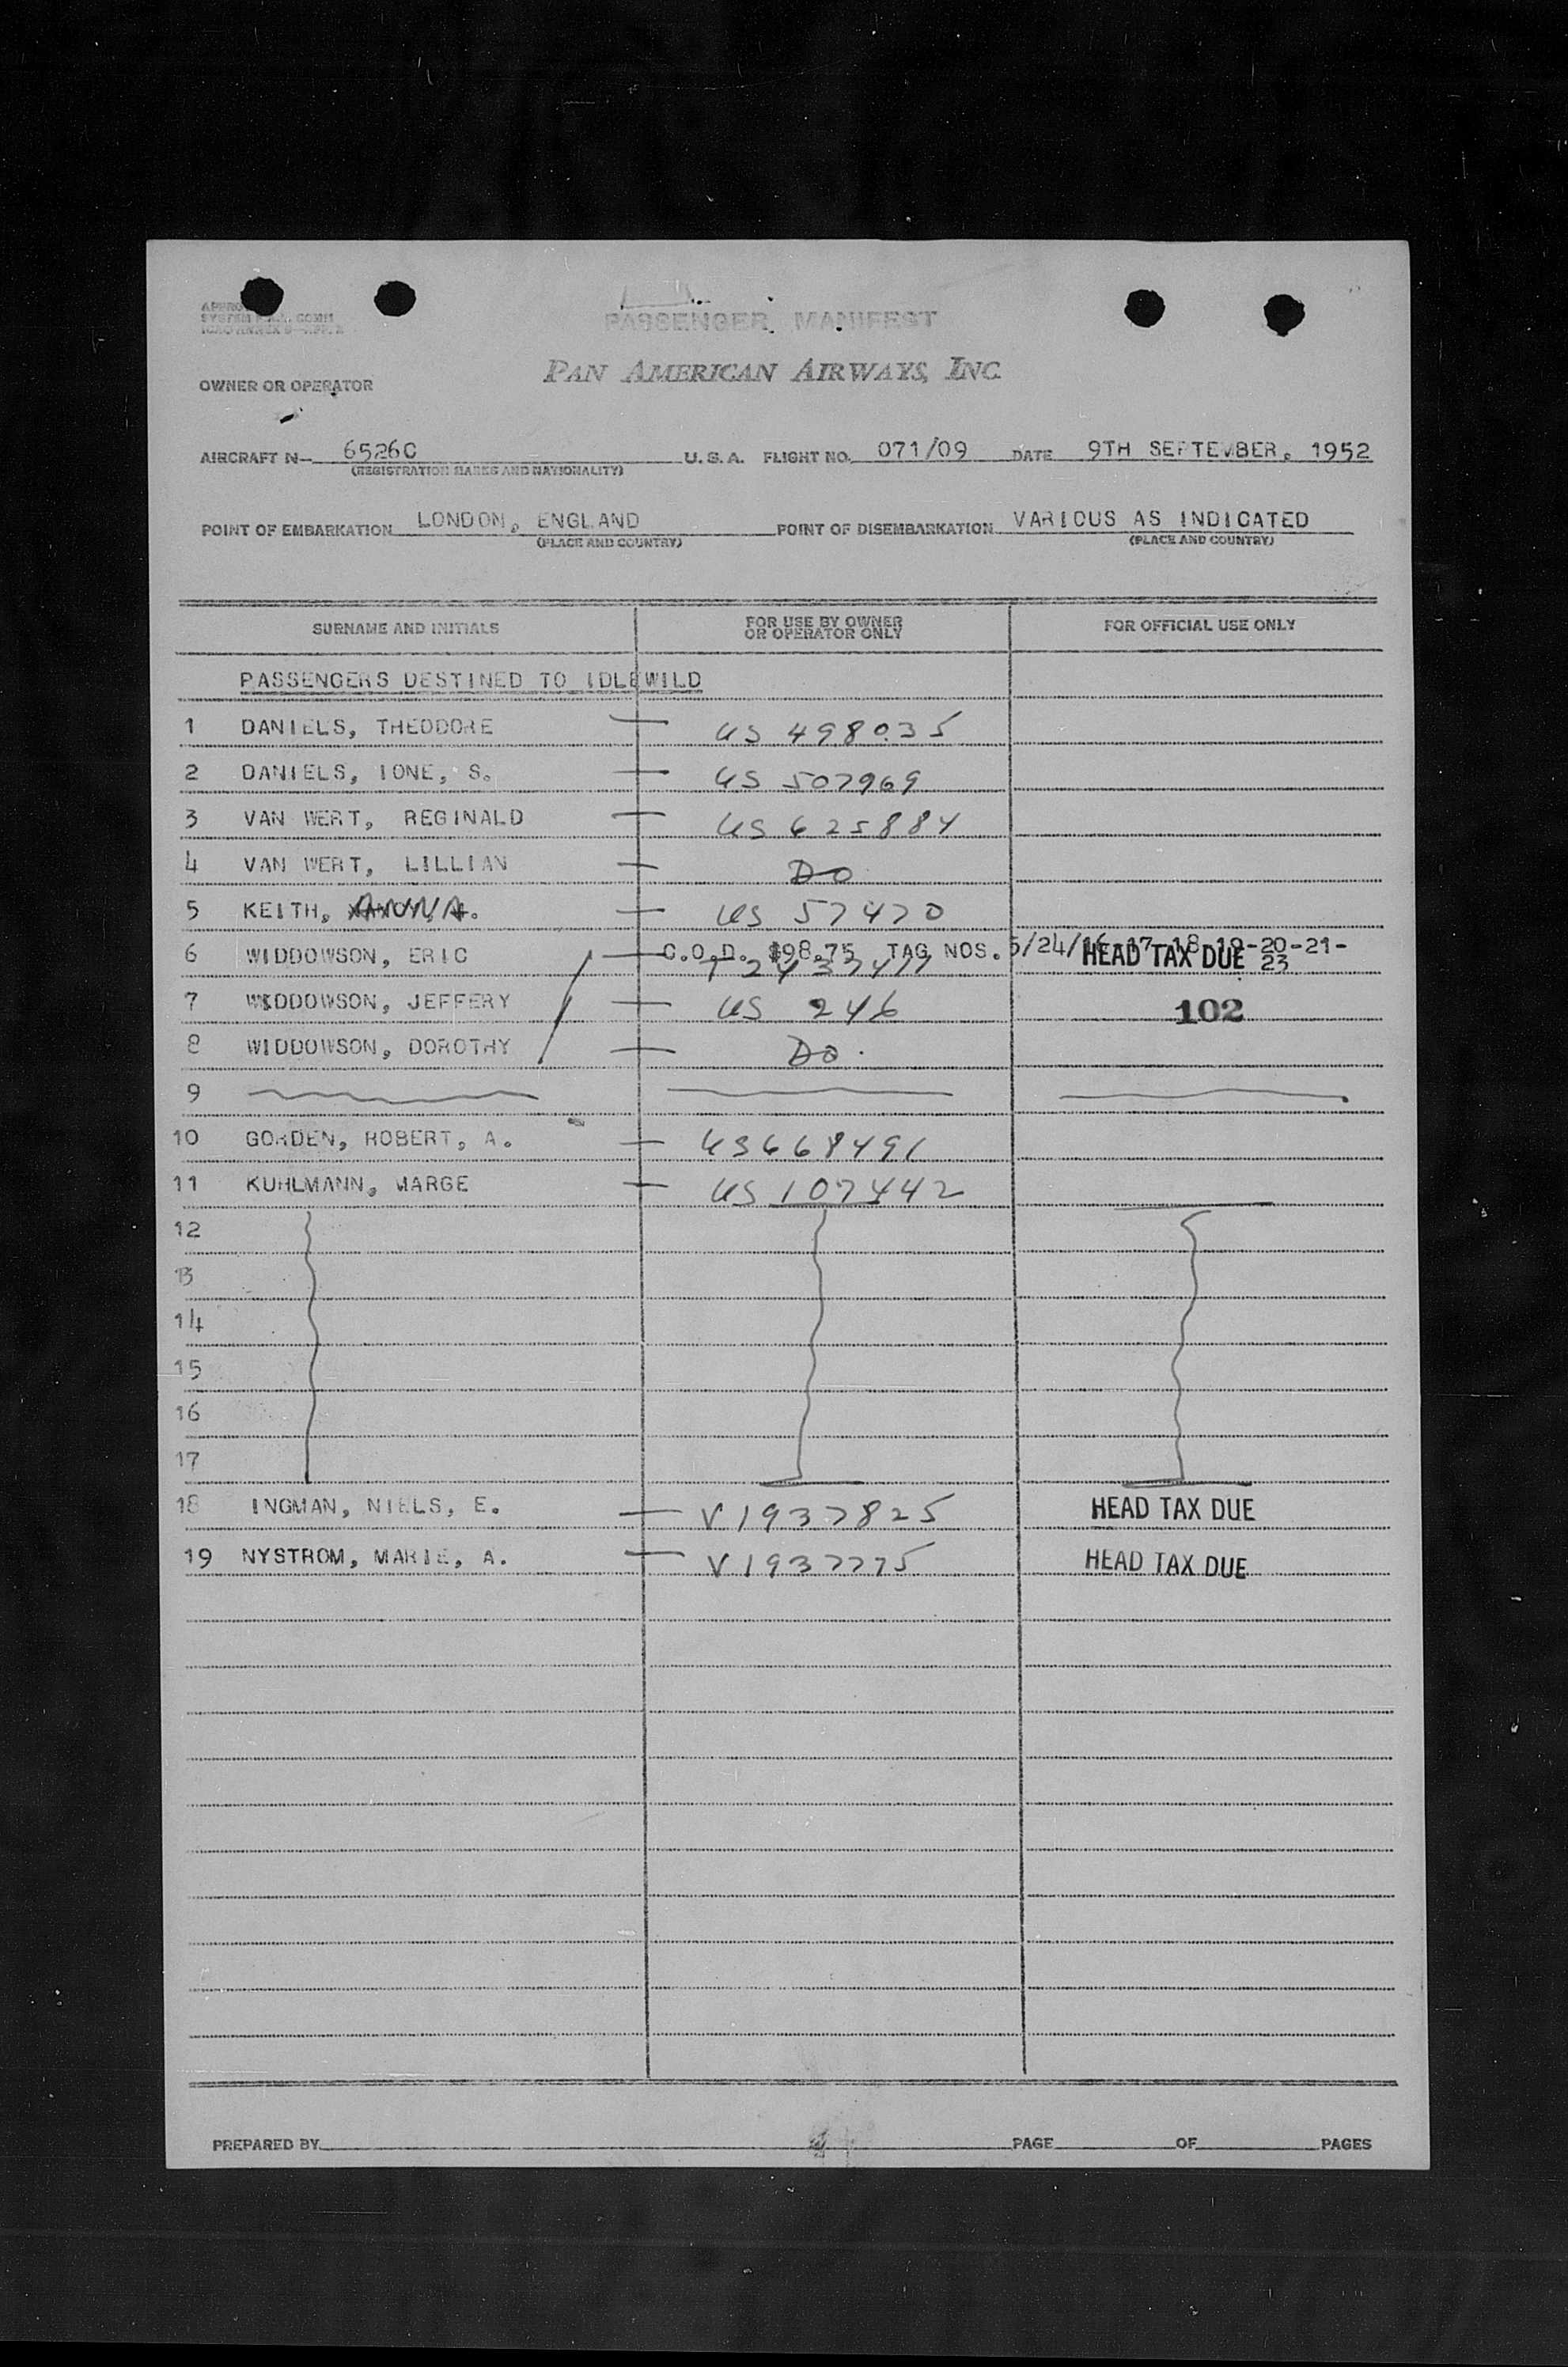 PASSENGER MANIFEST
PAN AMERICAN AIRWAYS, INC.
OWNER OR OPERATOR
AIRCRAFT N- 6526C U.S.A. FLIGHT NO. 071/09 DATE 9TH SEPTEMBER. 1952
(REGISTRATION MARKS AND NATIONALITY)
POINT OF EMBARKATION LONDON, ENGLAND POINT OF DISEMBARKATION VARIOUS AS INDICATED
(PLACE AND COUNTRY) (PLACE AND COUNTRY)
SURNAME AND INITIALS FOR USE BY OWNER OR OPERATOR ONLY FOR OFFICIAL USE ONLY
PASSENGERS DESTINED TO IDLEWILD
1 DANIELS, THEODORE — US 498035
2 DANIELS, IONE, S. — US 507969
3 VAN WERT, REGINALD — US 625884
4 VAN WERT, LILLIAN — DO
5 KEITH, ANNA. — US 57470
6 WIDDOWSON, ERIC — C.O.D. $98.75 TAG NOS. 5/24/16-17-18-19-20-21-
23
HEAD TAX DUE
7 WIDDOWSON, JEFFERY — US 246 102
8 WIDDOWSON, DOROTHY — DO.
9
10 GORDEN, ROBERT, A. — US668491
11 KUHLMANN, MARGE — US 107442
12
13
14
15
16
17
18 INGMAN, NIELS, E. — V1937825 HEAD TAX DUE
19 NYSTROM, MARIE, A. — V1937775 HEAD TAX DUE
PREPARED BY PAGE OF PAGES